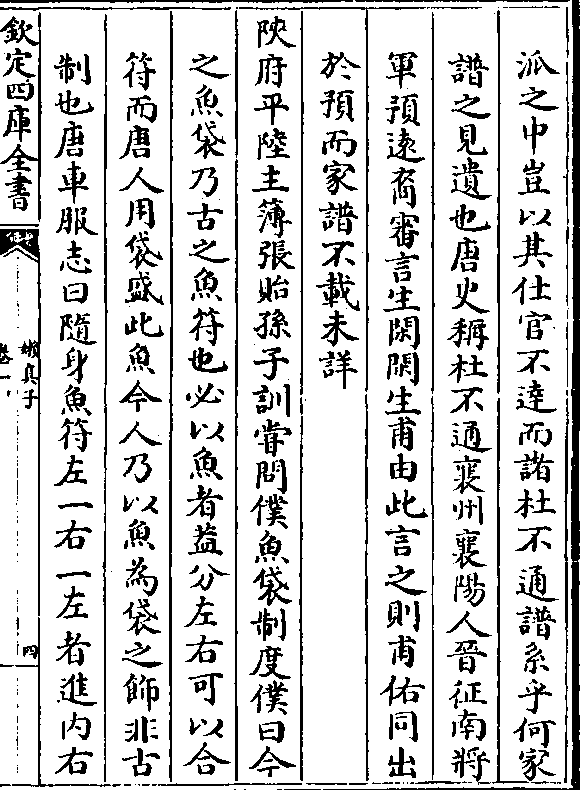 派之中豈以其仕官不達而諸杜不通譜系乎何家
譜之見遺也唐史稱杜不通襄州襄陽人晉征南將
軍預遠裔審言生閑閑生甫由此言之則甫佑同出
於預而家譜不載未詳
陜府平陸主簿張貽孫子訓嘗問僕魚袋制度僕曰今
之魚袋乃古之魚符也必以魚者盖分左右可以合
符而唐人用袋盛此魚今人乃以魚為袋之飾非古
制也唐車服志曰隨身魚符左一右一左者進内右
欽定四庫全書
嬾真子
卷一
四